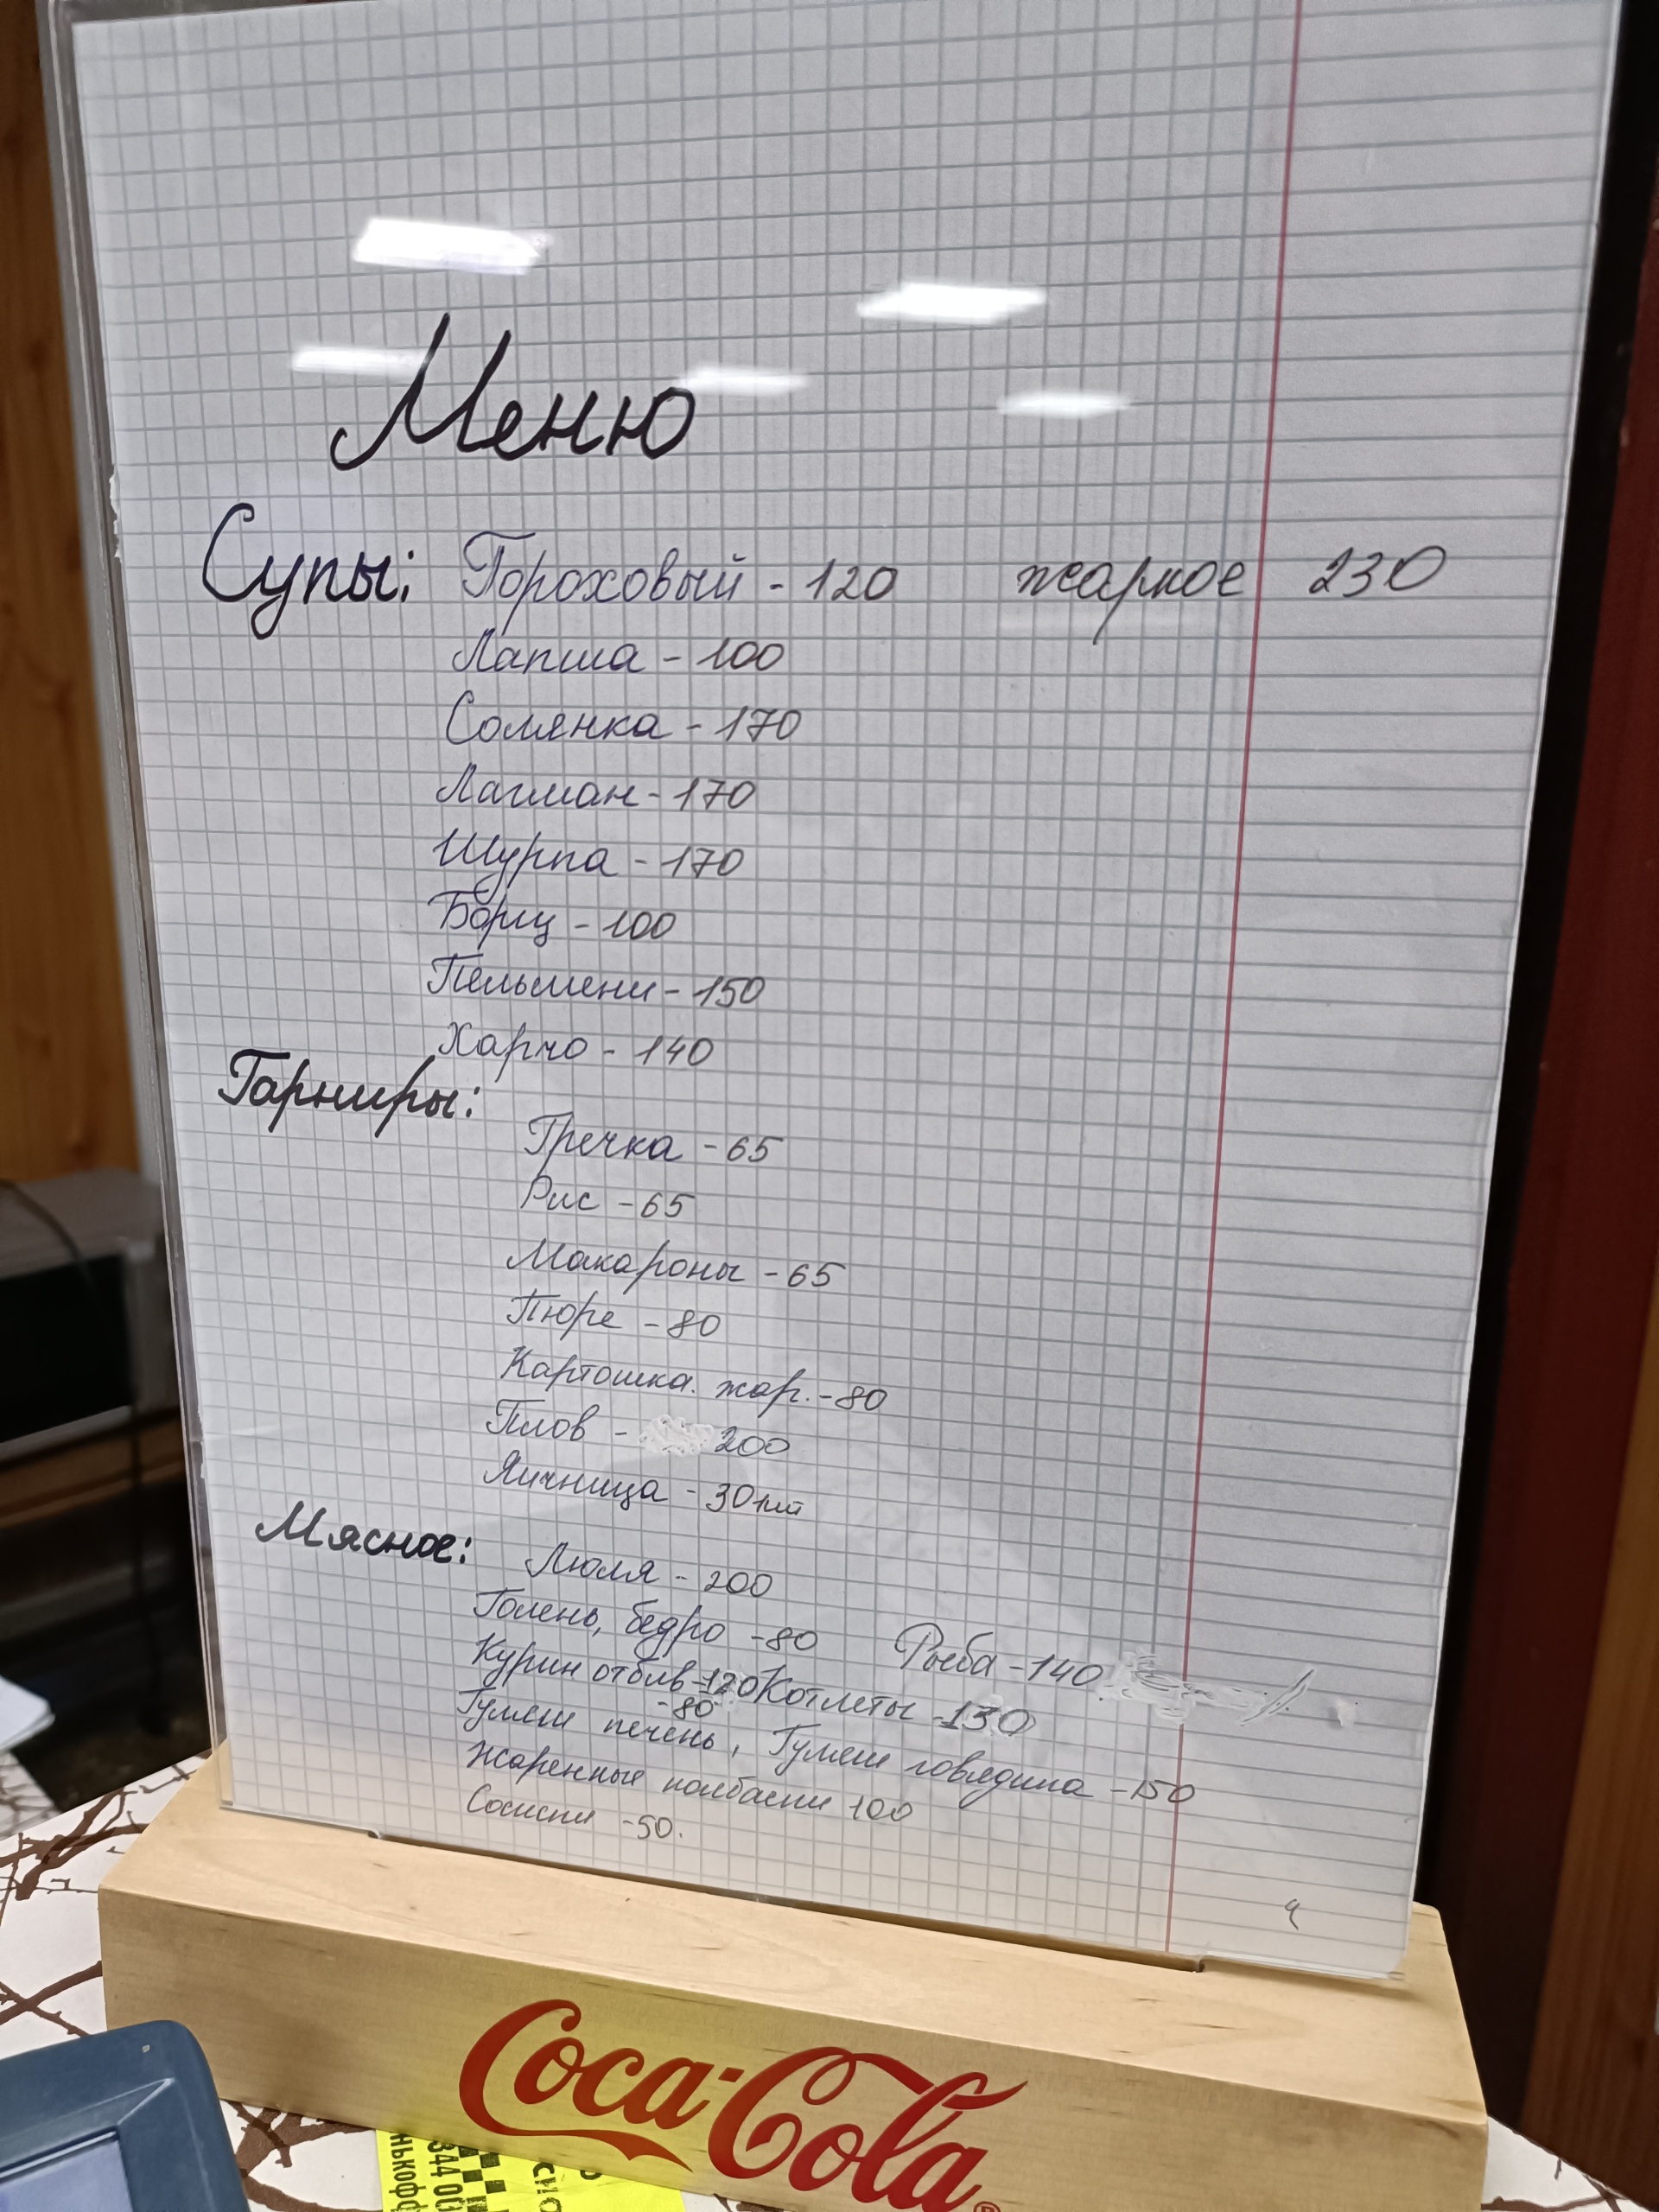 Меню
Супы: Гороховый - 120 жаркое 230
Лапша - 100
Солянка - 170
Лагман - 170
Шурпа - 170
Борщ - 100
Пельмени - 150
Харчо - 140
Гарниры:
Гречка - 65
Рис - 65
Макароны - 65
Пюре - 80
Картошка. жар. - 80
Плов - 200
Яичница - 30 1шт
Мясное: Люля - 200
Голень, бедро - 80 Рыба - 140
Курин отбив - 120 Котлеты - 130
- 80
Гуляш печень, Гуляш говядина - 150
Жаренные колбаски 100
Сосиски - 50.
Coca-Cola
344 00
нькофф